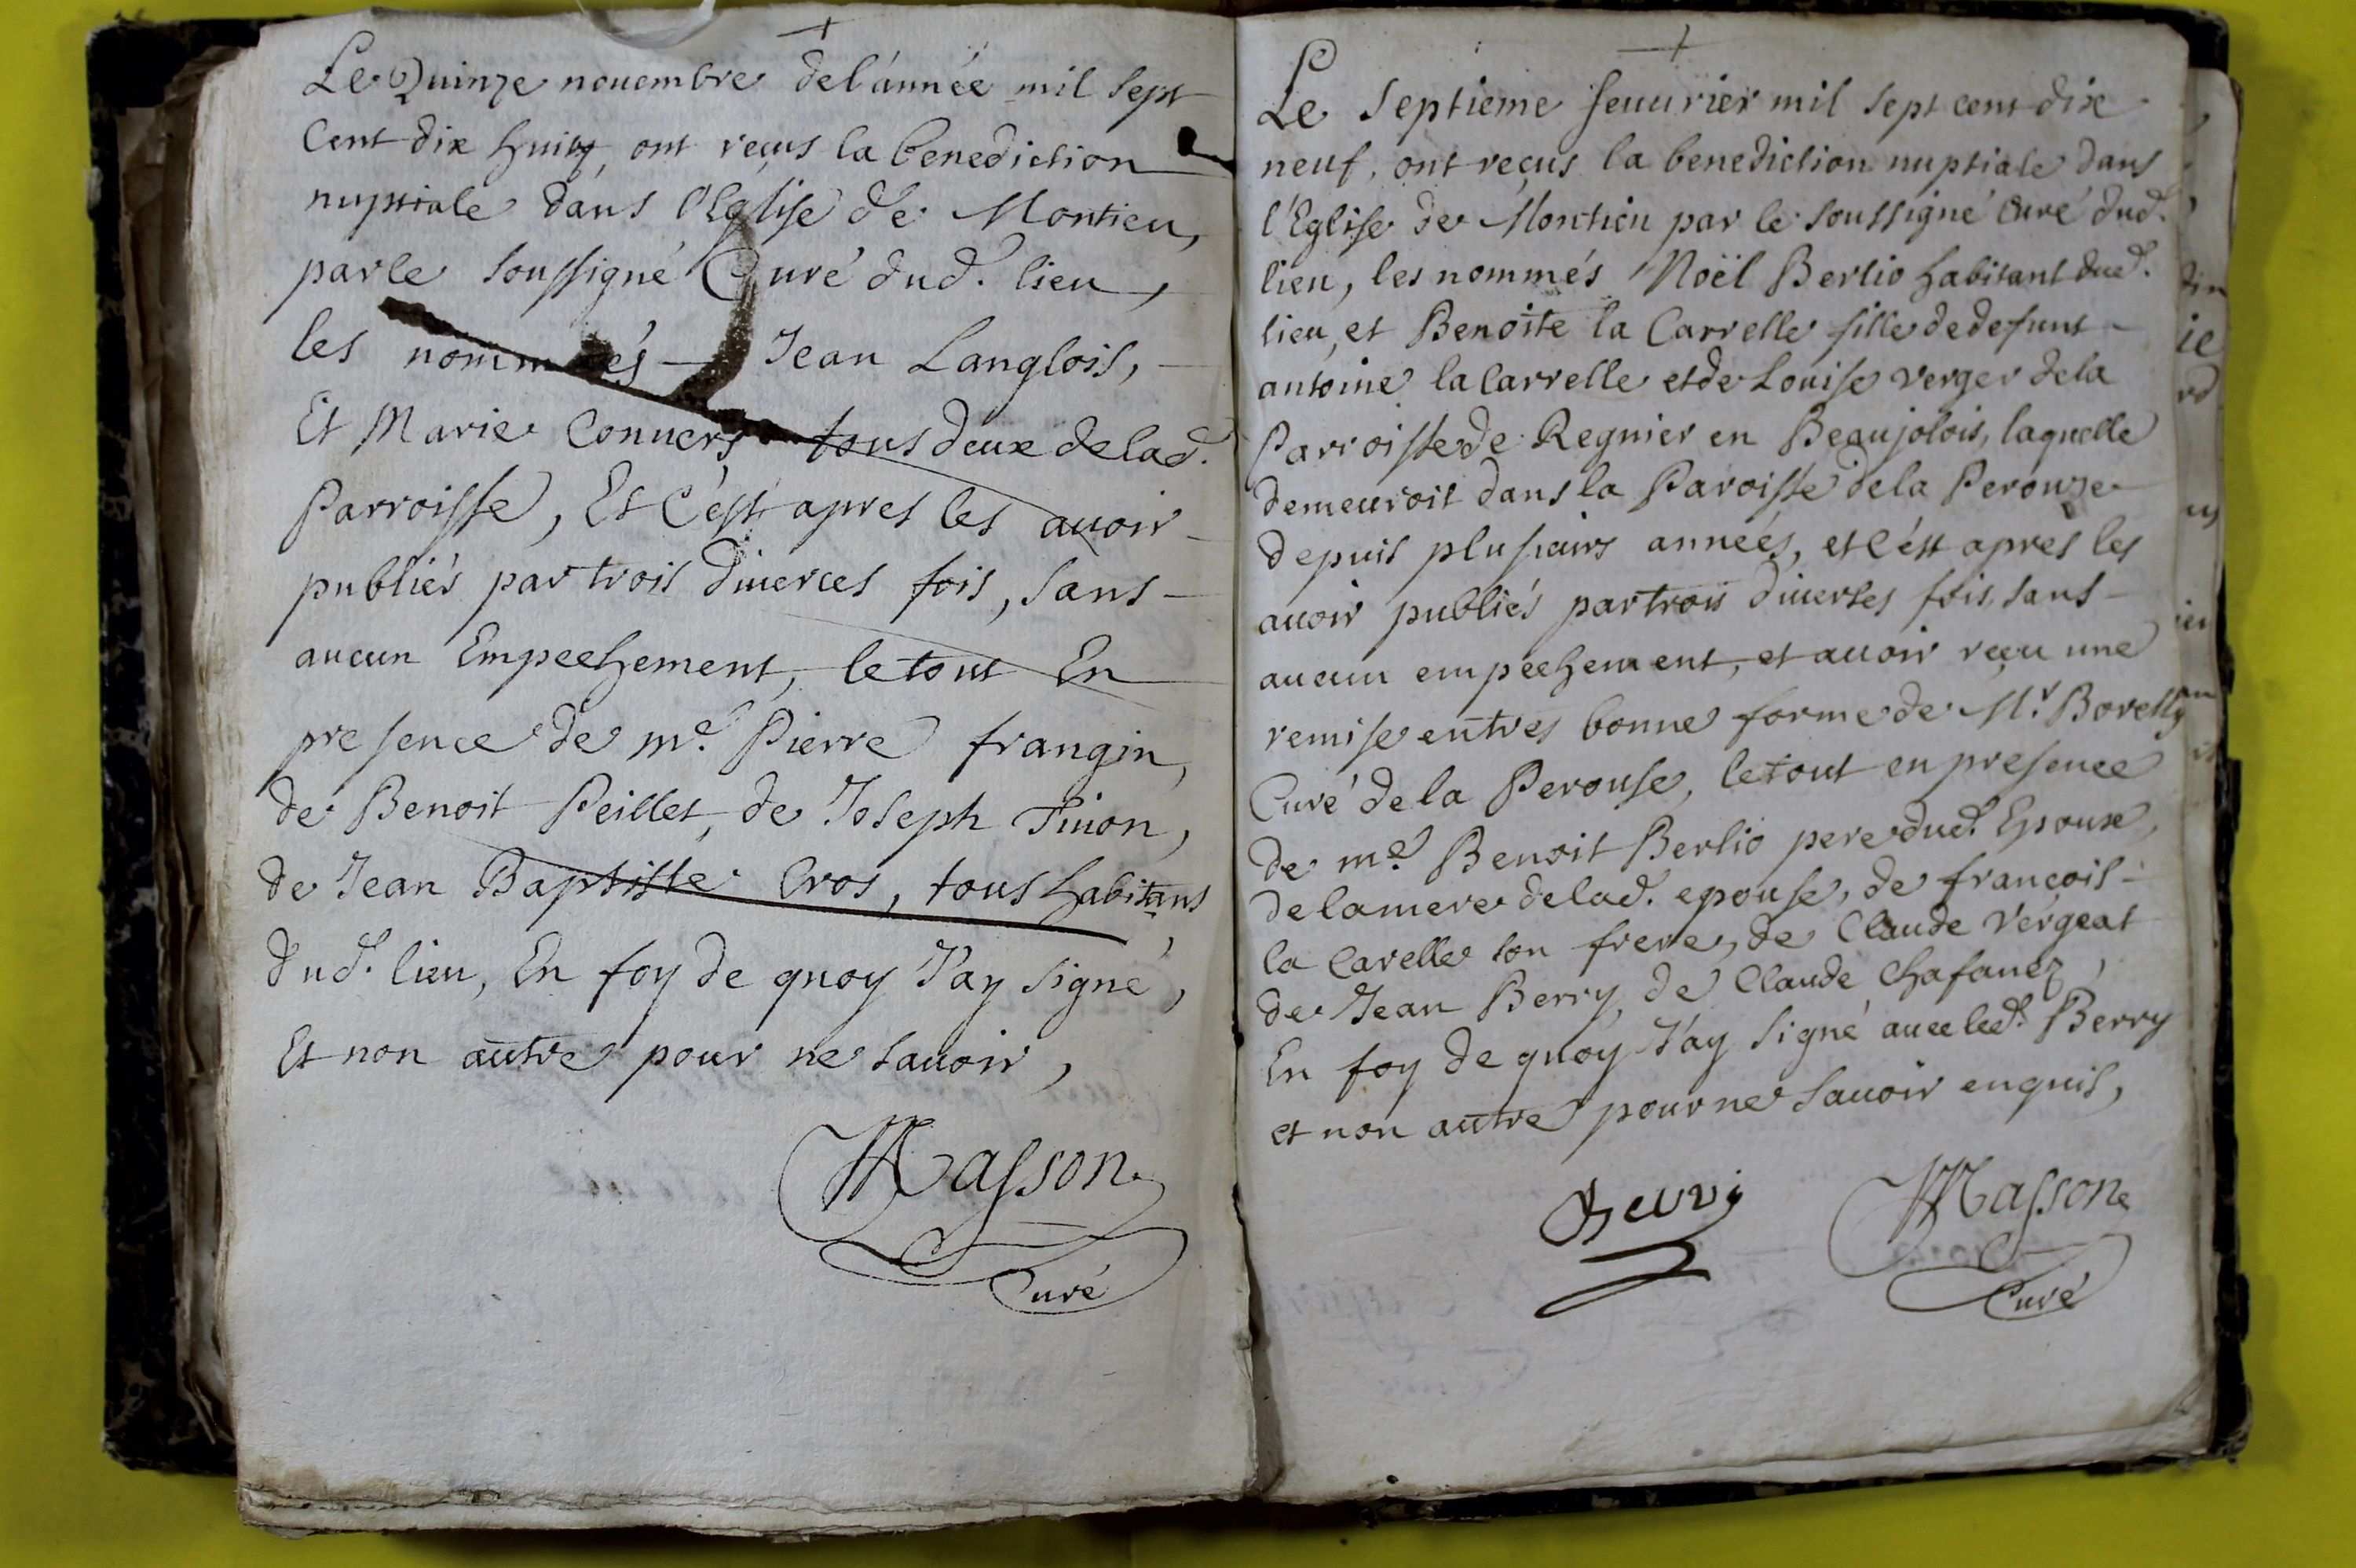 Le Quinze nouembre de l'année mil sept
Cent dix huit, ont reçus la benediction
nuptiale dans l'Eglise de Montieu,
par le soussigné Curé dud. lieu,
les nommés Jean Langlois,
Et Marie Conuers tous deux de lad.
Parroisse, Et c'est apres les auoir
publiés par trois diuerces fois, sans
aucun Empeehement, le tout En
presence de me. Pierre frangin,
de Benoit Peillet, de Joseph Fiuon,
de Jean Baptiste Cros, tous habitans
dud. lieu, En foy de quoy J'ay signé,
Et non autre pour ne sauoir,
Masson
Curé
Le Septieme feuurier mil sept cent dix
neuf, ont reçus la benediction nuptiale dans
l'Eglise de Montieu par le soussigné Curé dud.
lieu, les nommés Noël Berlio habitant dud.
lieu, et Benoite la Carrelle fille de defunt
antoine la Carrelle et de Louise verger de la
Parroisse de Regnier en Beaujolois, laquelle
demeuroit dans la Paroisse de la Perouze
depuis plusieurs années, et c'est apres les
auoir publiés par trois diuerses fois, sans
aucun empeehement, et auoir reçu une
remise en tres bonne forme de Mr. Borelly
Curé de la Perouse, le tout en presence
de me. Benoit Berlio pere dud. Epoux,
de la mere de lad. epouse, de françois
la Carelle son frere, de Claude Vergeat
de Jean Berry, de Claude Chafanez,
En foy de quoy J'ay signé auec led. Berry
et non autre pour ne sauoir enquis,
Berry Masson
Curé